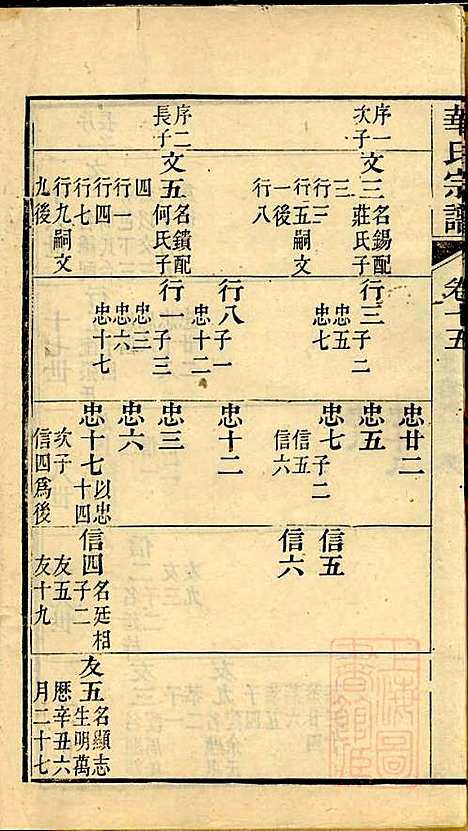 華氏宗譜 卷十五
序一
次子
文三名錫配
莊氏子
三
行三
行五嗣文
一後
行八
序二
長子
文五名鐼配
何氏子
四
行一
行四
行七
行九嗣文
九後
行三子二
忠五
忠七
行八子一
忠十二
行一子三
忠三
忠六
忠十七
忠廿二
忠五
忠七子二
信五
信六
忠十二
忠三
忠六
忠十七以忠
十四
次子
信四爲後
信五
信六
信四名廷相
子二
友五
友十九
友五名顯志
生明萬
曆辛丑六
月二十七
上海圖書館藏